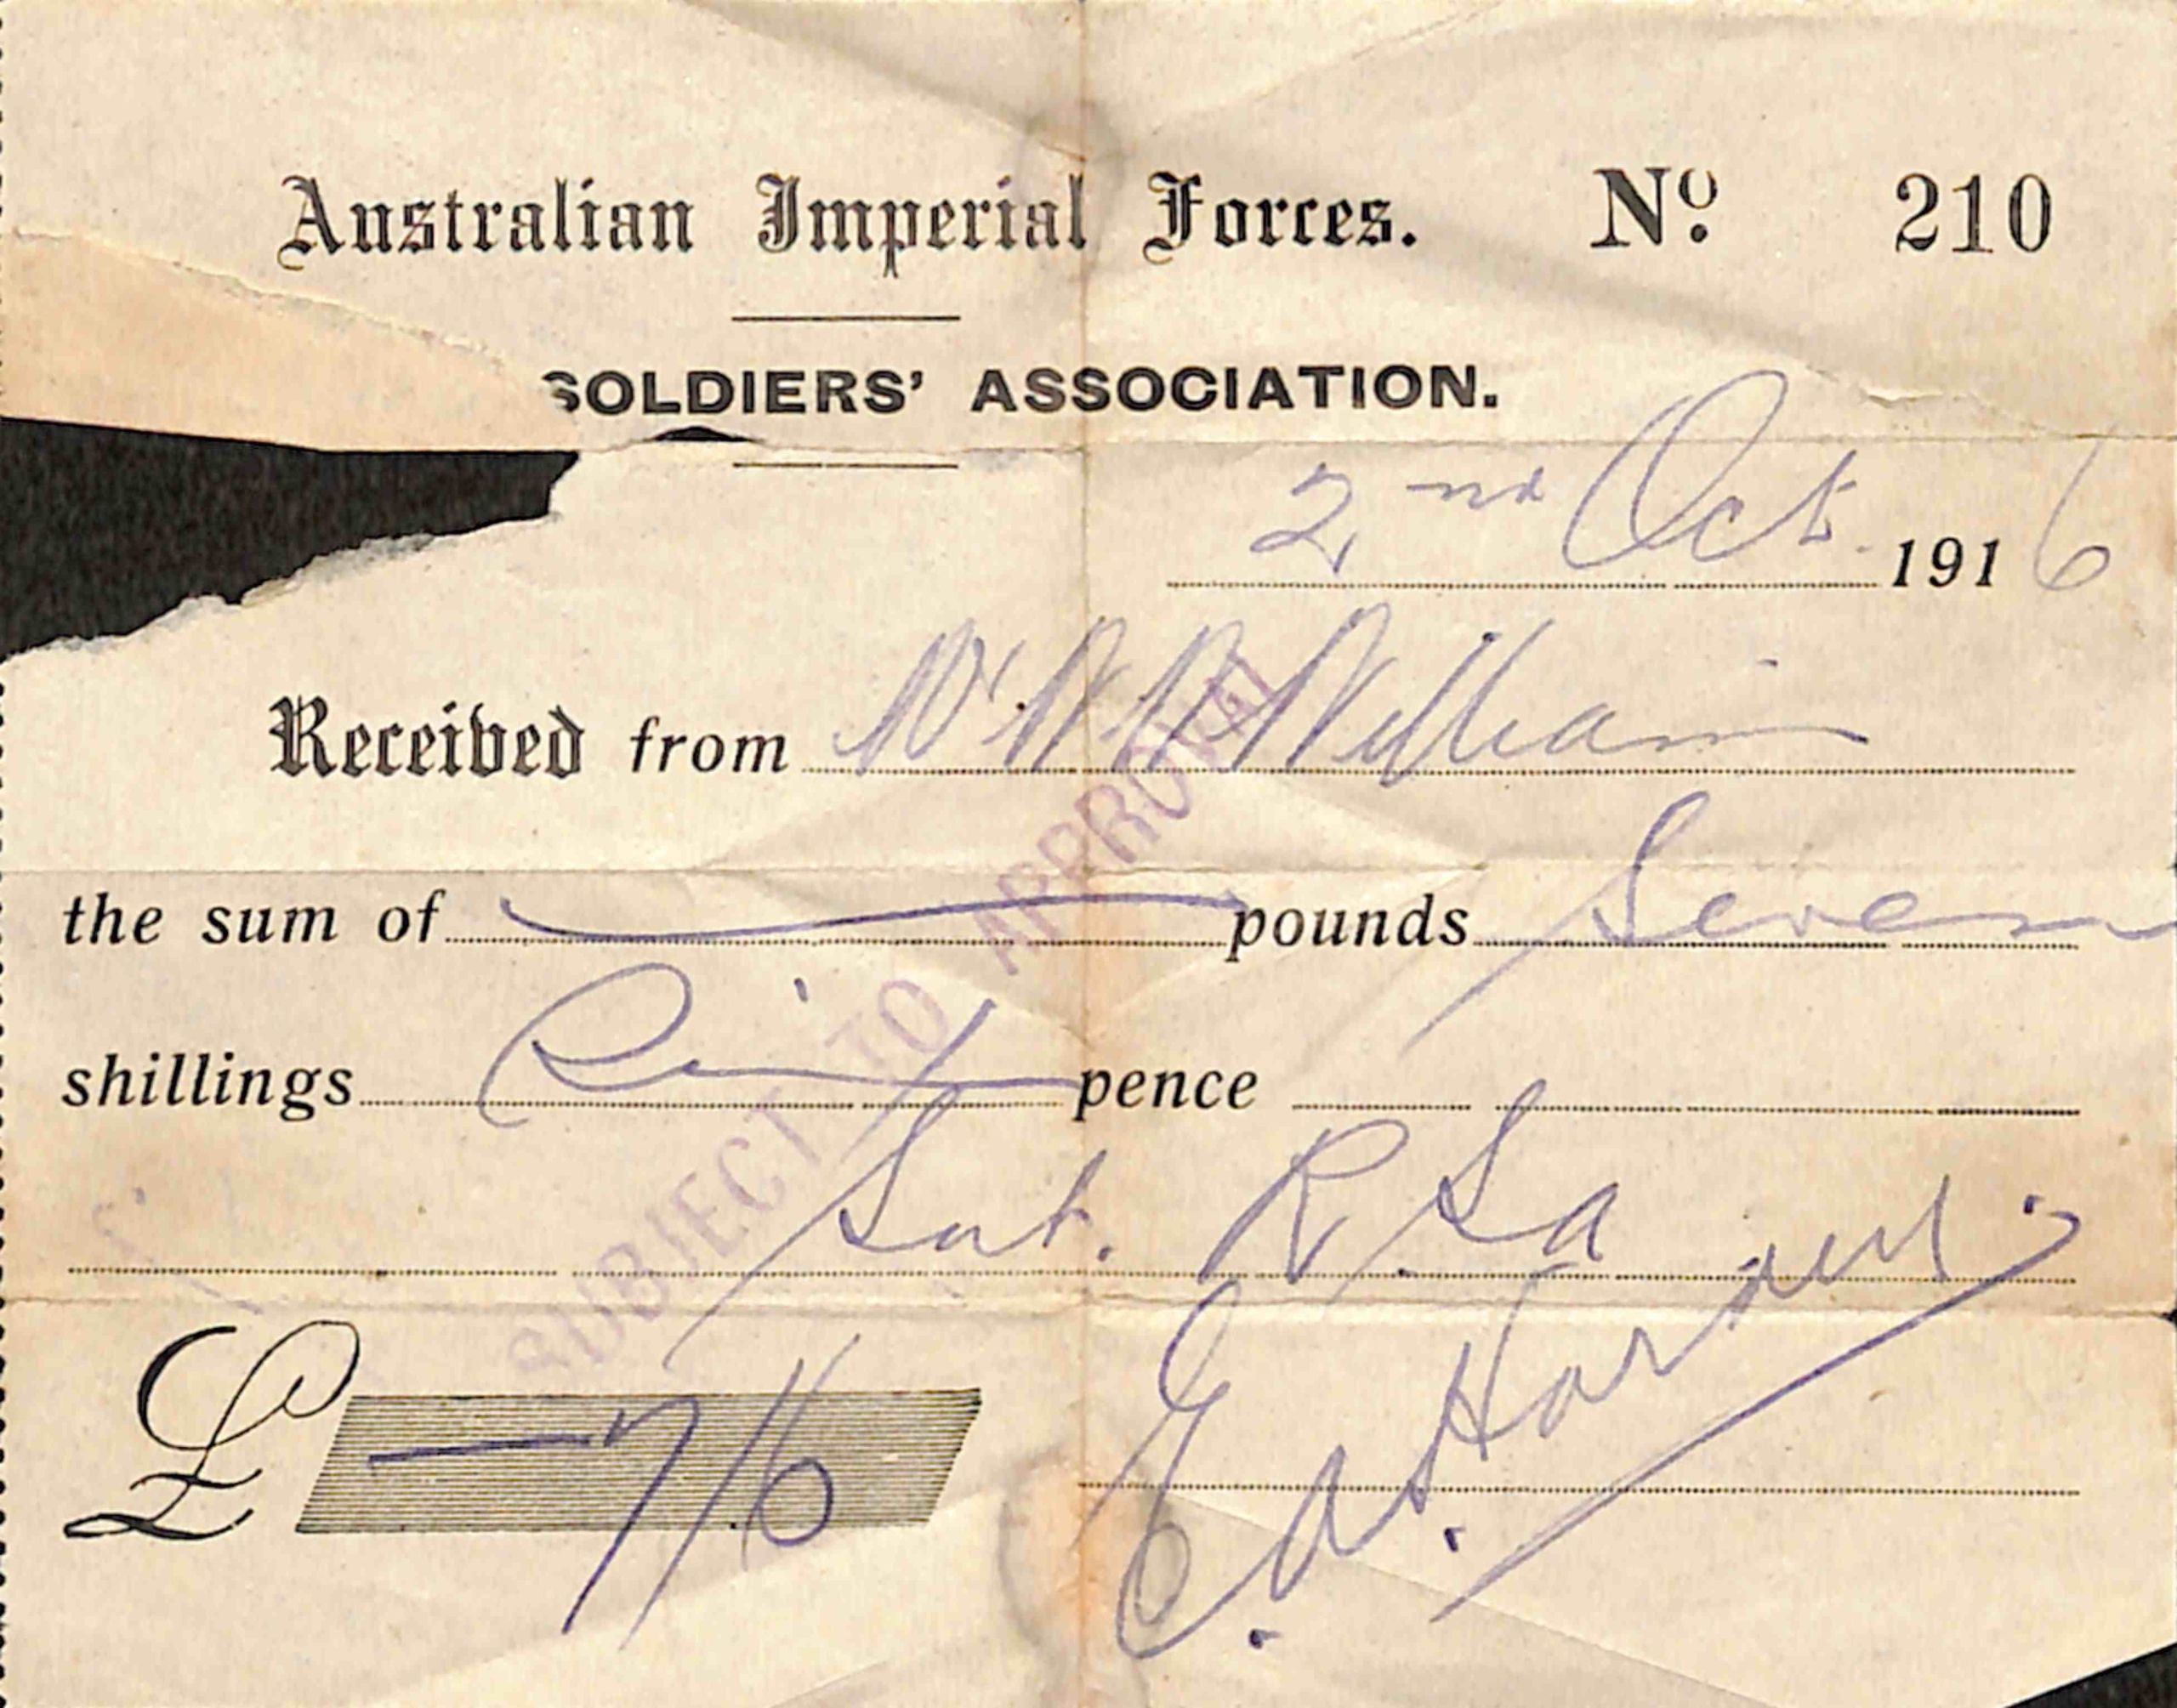 Australian Imperial Forces. Nº 210
SOLDIERS' ASSOCIATION.
2nd Oct. 1916
Received from William
the sum of pounds Seven
shillings pence
Sub. R.S.a
£ — 7/6
E.A.
SUBJECT TO APPROVAL